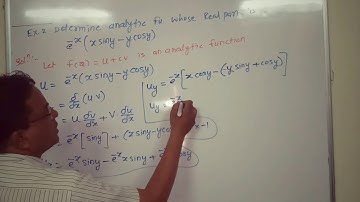 Ex.2 Determine analytic fn whose Real part is
e^-x (x siny - y cosy)
Soln:- Let f(z) = u + iv is an analytic function
u = e^-x (x siny - y cosy)
= d/dx (u v)
= u dv/dx + v du/dx
e^-x [siny] + (x siny - y cosy) x -1
= e^-x siny - e^-x x siny +
uy = e^-x [x cosy - (-y siny + cosy)]
uy = e^-x